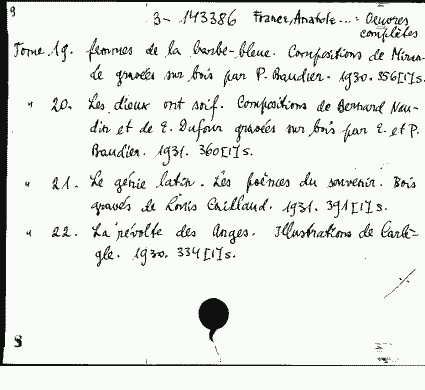 9
3- 143386 France, Anatole ... : Oeuvres
complètes
Tome 19. femmes de la barbe-bleue. Compositions de Miran-
de gravées sur bois par P. Baudier. 1930. 356[1]s.
" 20. Les dieux ont soif. Compositions de Bernard Nau-
din et de E. Dufour gravées sur bois par E. et P.
Baudier. 1931. 360[1]s.
" 21. Le génie latin. Les poèmes du souvenir. Bois
gravés de Louis Caillaud. 1931. 391[1]s.
" 22. La révolte des Anges. Illustrations de Carlè-
gle. 1930. 334[1]s.
8